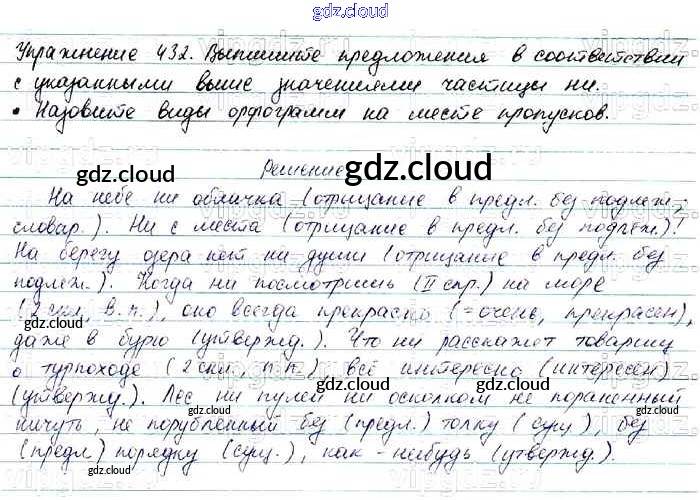 gdz.cloud
Упражнение 432. Выпишите предложения в соответствии
с указанными выше значениями частицы ни.
• Назовите виды орфограмм на месте пропусков.
Решение
gdz.cloud gdz.cloud
На небе ни облачка (отрицание в предл. без подлеж.,
словар.). Ни с места (отрицание в предл. без подлеж.)!
gdz.cloud
На берегу озера нет ни души (отрицание в предл. без
подлеж.). Когда ни посмотришь (II спр.) на море
(2 скл., В.п.), оно всегда прекрасно (=очень, прекрасен),
gdz.cloud
даже в бурю (утвержд.). Что ни расскажет товарищ
о турпоходе (2 скл., П.п.) всё интересно (интересен)
gdz.cloud gdz.cloud
(утвержд.). Лес ни пулей ни осколком не пораненный
gdz.cloud gdz.cloud
ничуть, не порубленный без (предл.) толку (сущ.), без
(предл.) порядку (сущ.), как-нибудь (утвержд.).
gdz.cloud